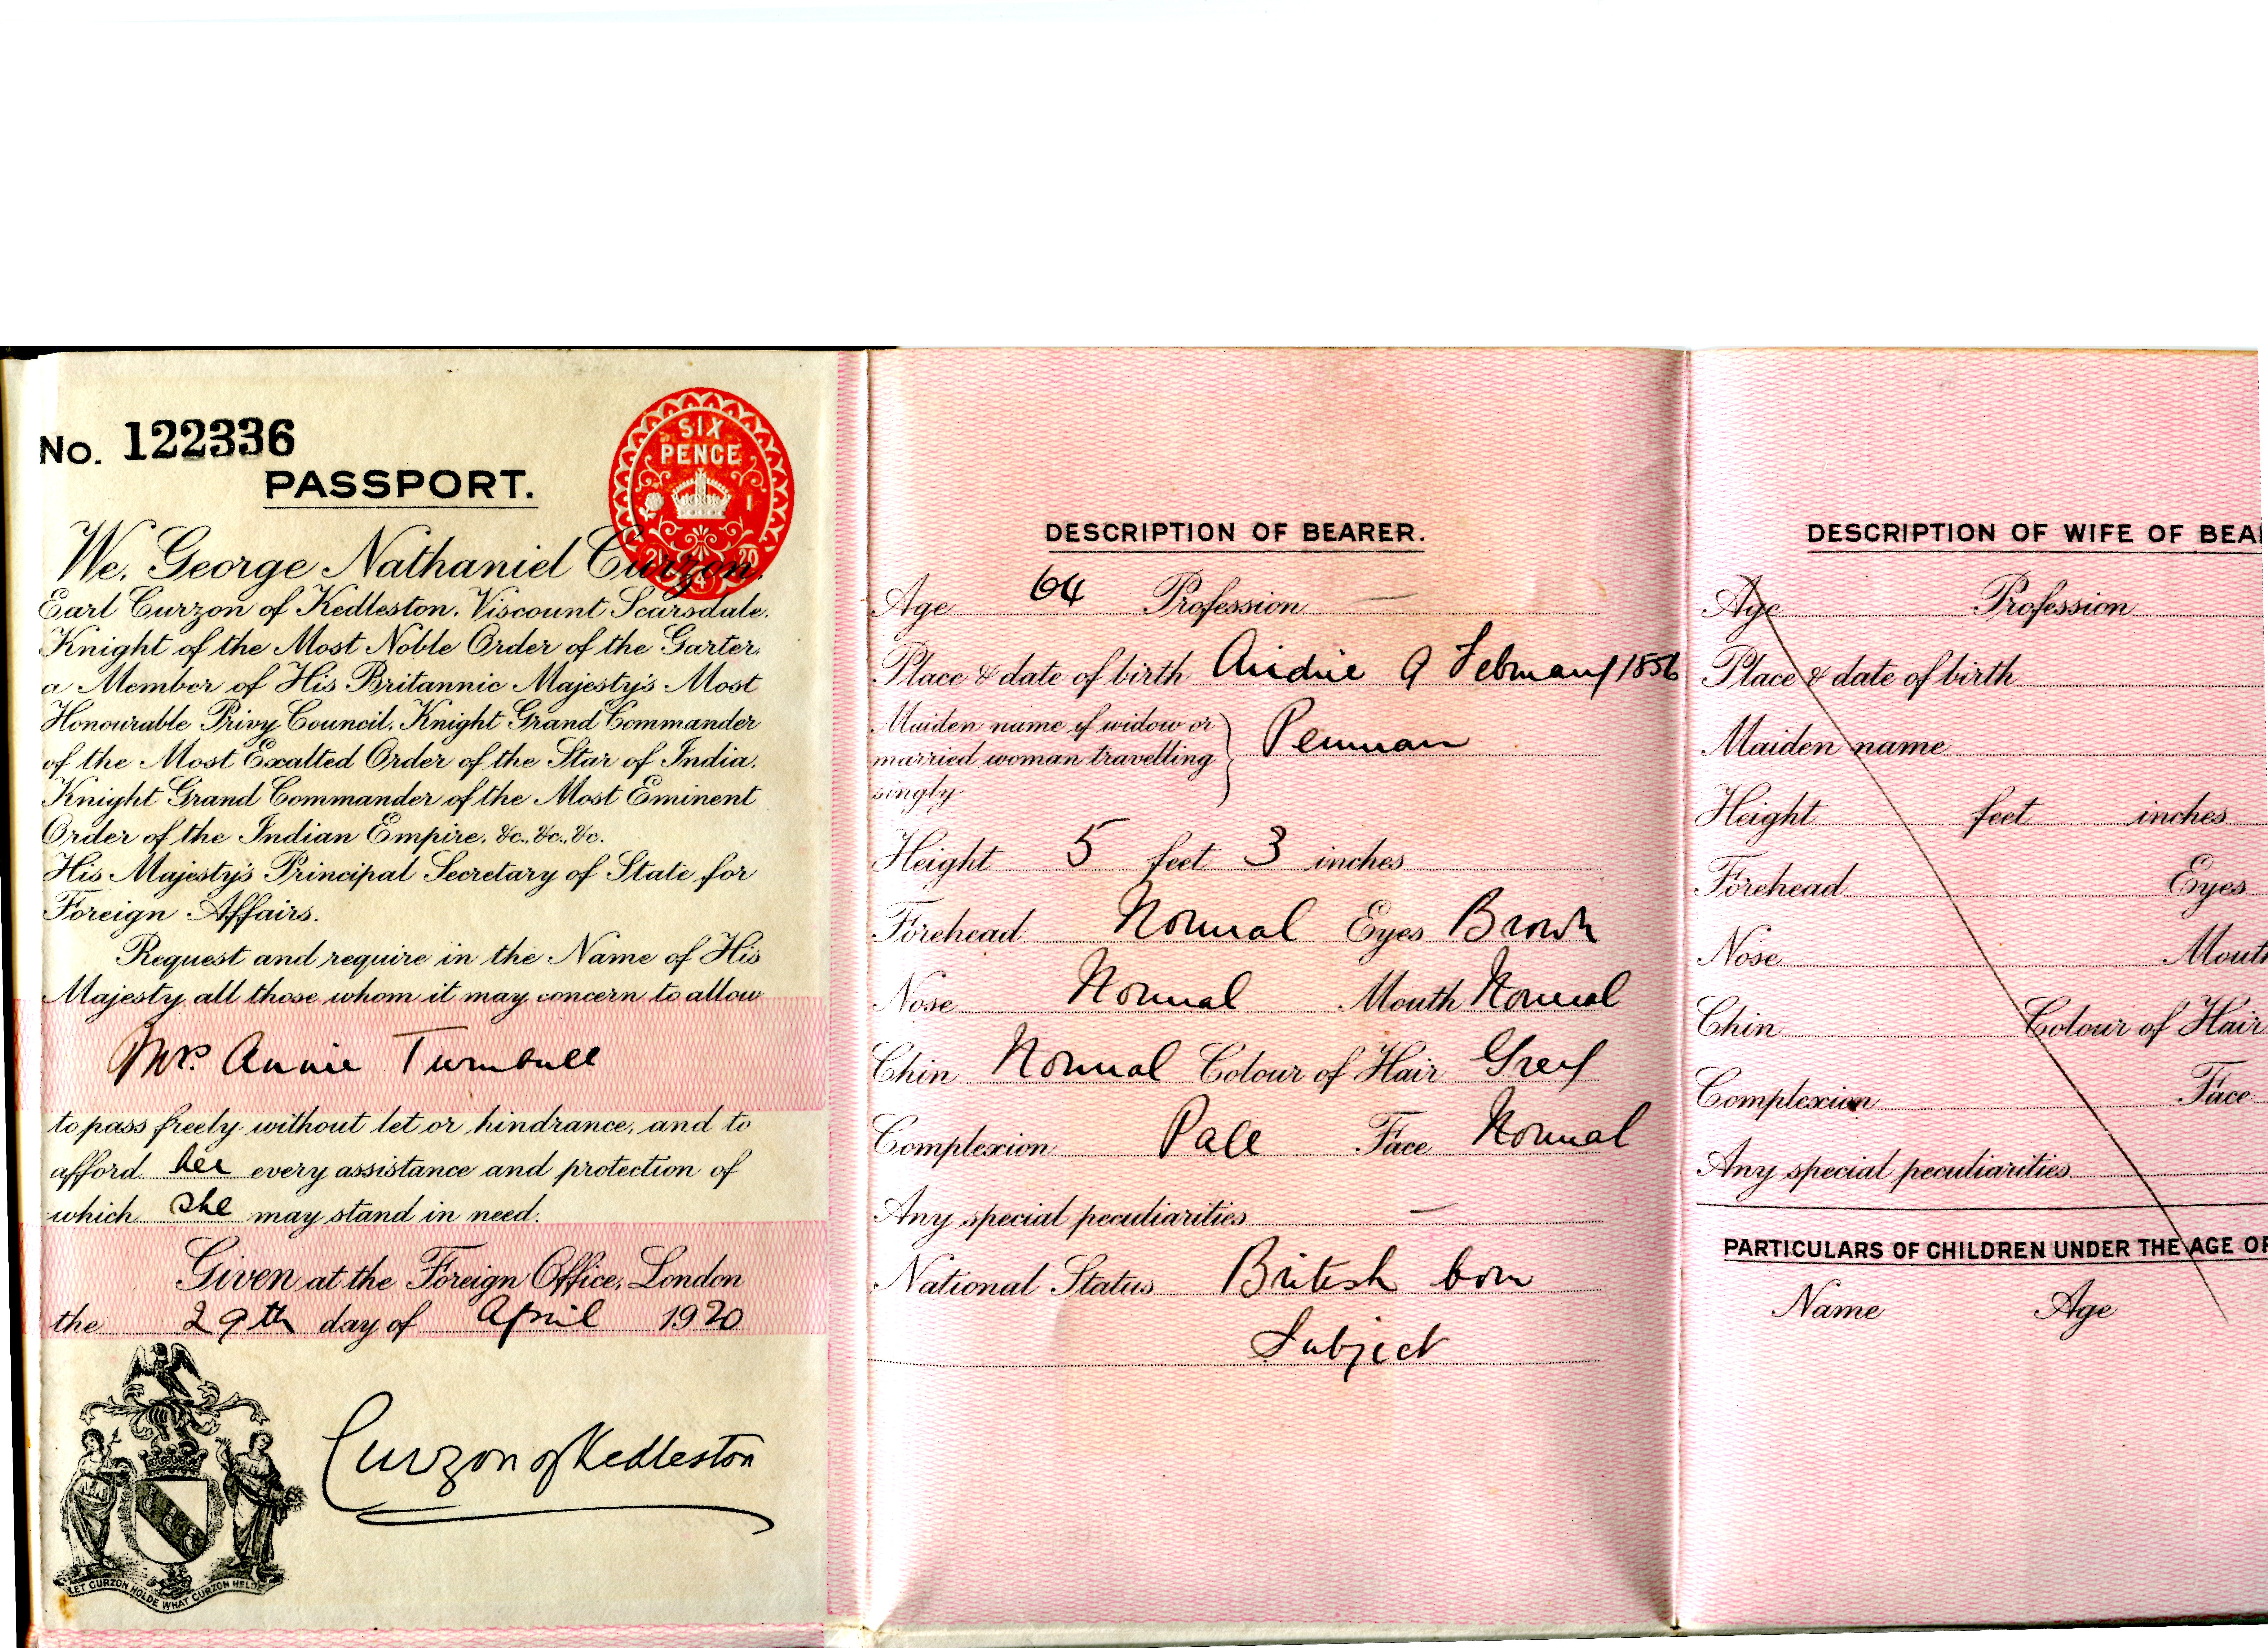 No. 122336
PASSPORT.
SIX
PENCE
We, George Nathaniel Curzon,
Earl Curzon of Kedleston, Viscount Scarsdale,
Knight of the Most Noble Order of the Garter,
a Member of His Britannic Majesty's Most
Honourable Privy Council, Knight Grand Commander
of the Most Exalted Order of the Star of India,
Knight Grand Commander of the Most Eminent
Order of the Indian Empire, &c., &c., &c.
His Majesty's Principal Secretary of State for
Foreign Affairs.
Request and require in the Name of His
Majesty all those whom it may concern to allow
Mrs. Annie Turnbull
to pass freely without let or hindrance, and to
afford her every assistance and protection of
which she may stand in need.
Given at the Foreign Office, London
the 29th day of April 1920
Curzon of Kedleston
LET CURZON HOLDE WHAT CURZON HELDE
DESCRIPTION OF BEARER.
Age 64 Profession —
Place & date of birth Airdrie 9 February 1856
Maiden name if widow or
married woman travelling
singly
Penman
Height 5 feet 3 inches
Forehead Normal Eyes Brown
Nose Normal Mouth Normal
Chin Normal Colour of Hair Grey
Complexion Pale Face Normal
Any special peculiarities —
National Status British born
Subject
DESCRIPTION OF WIFE OF BEA
Age Profession
Place & date of birth
Maiden name
Height feet inches
Forehead Eyes
Nose Mout
Chin Colour of Hair
Complexion Face
Any special peculiarities
PARTICULARS OF CHILDREN UNDER THE AGE OF
Name Age